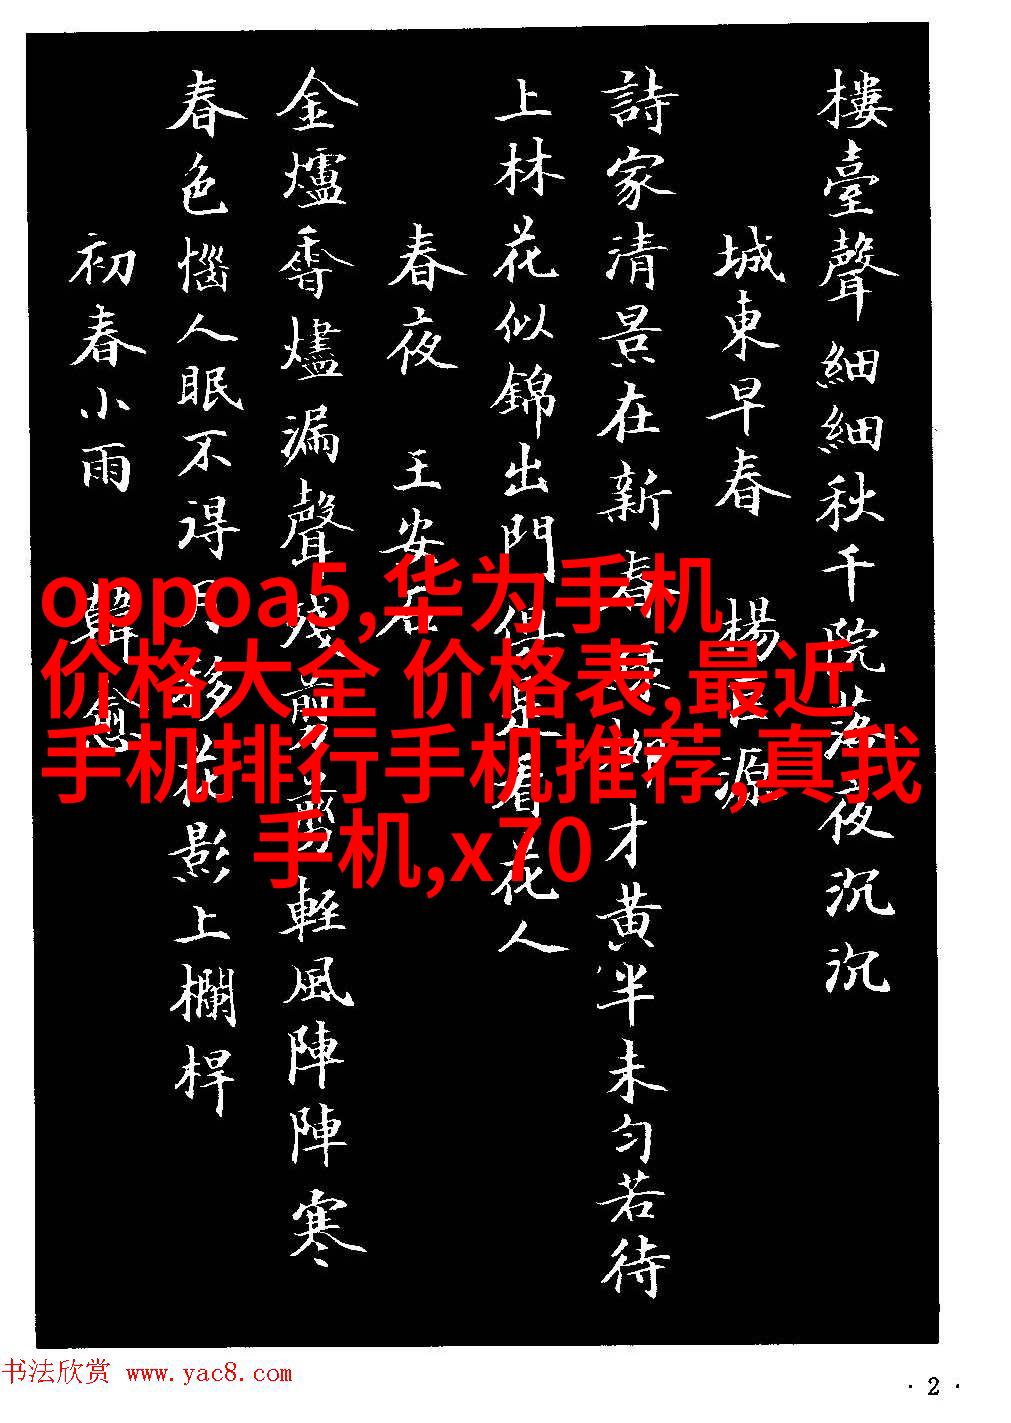 樓臺聲細細秋千院落夜沉沉
城東早春 楊巨源
詩家清景在新春綠柳才黃半未勻若待
上林花似錦出門俱是看花人
春夜 王安石
金爐香燼漏聲殘剪剪輕風陣陣寒
春色惱人眠不得月移花影上欄桿
初春小雨 韓愈
oppoa5,华为手机
价格大全 价格表,最近
手机排行手机推荐,真我
手机,x70
书法欣赏 www.yac8.com
· 2 ·